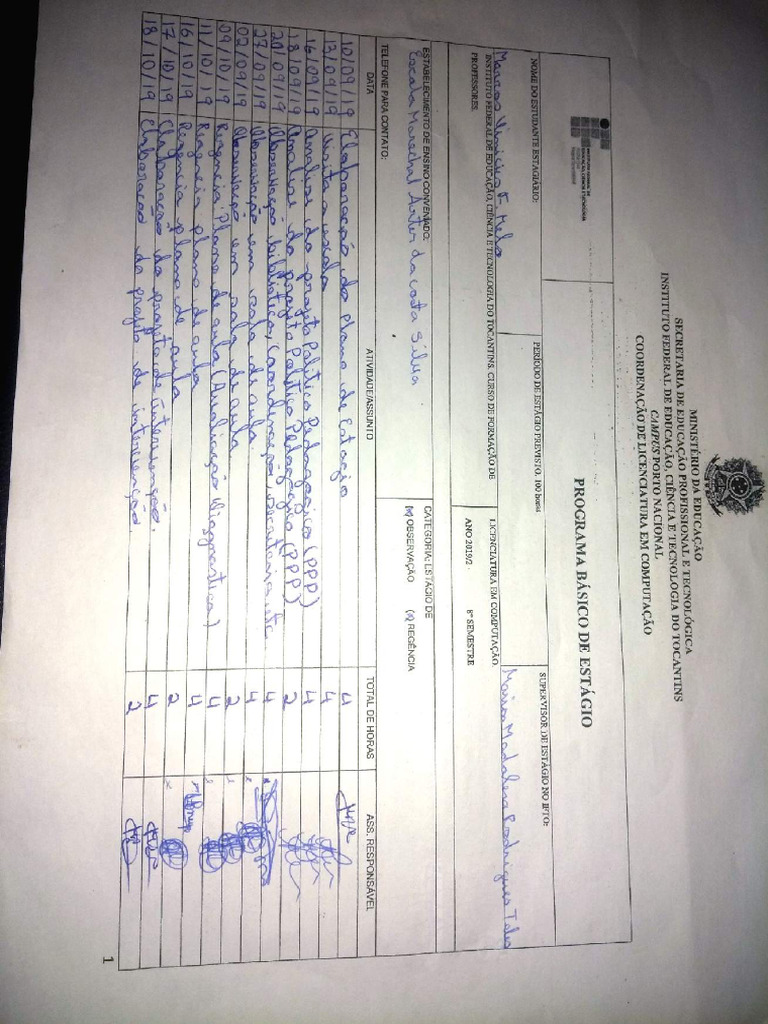 MINISTÉRIO DA EDUCAÇÃO
SECRETARIA DE EDUCAÇÃO PROFISSIONAL E TECNOLÓGICA
INSTITUTO FEDERAL DE EDUCAÇÃO, CIÊNCIA E TECNOLOGIA DO TOCANTINS
CAMPUS PORTO NACIONAL
COORDENAÇÃO DE LICENCIATURA EM COMPUTAÇÃO
PROGRAMA BÁSICO DE ESTÁGIO
NOME DO ESTUDANTE ESTAGIÁRIO: PERÍODO DE ESTÁGIO PREVISTO: 100 horas SUPERVISOR DE ESTÁGIO NO IFTO:
Marcos Vinicius F. Melo Maria Madalena Rodrigues Teles
INSTITUTO FEDERAL DE EDUCAÇÃO, CIÊNCIA E TECNOLOGIA DO TOCANTINS. CURSO DE FORMAÇÃO DE LICENCIATURA EM COMPUTAÇÃO.
PROFESSORES: ANO 2019/2 8º SEMESTRE
ESTABELECIMENTO DE ENSINO CONVENIADO: CATEGORIA: ESTÁGIO DE
Escola Marechal Artur da costa Silva (x) OBSERVAÇÃO (x) REGÊNCIA
TELEFONE PARA CONTATO:
DATA ATIVIDADE/ASSUNTO TOTAL DE HORAS ASS. RESPONSÁVEL
10/09/19 Elaboração do plano de Estagio 4
13/09/19 visita a escola 4
16/09/19 Analise do projeto Politico Pedagogico (PPP) 4
18/09/19 Analise do projeto Politico Pedagogico (PPP) 2
20/09/19 Observação, biblioteca, Coordenação, secretaria, etc 4
27/09/19 Observação em sala de aula 4
02/09/19 Observação em sala de aula 2
09/10/19 Regencia: Plano de aula (Avaliação Diagnostica) 4
11/10/19 Regencia plano de aula 4
16/10/19 Regencia plano de aula 2
17/10/19 Elaboração do projeto de intervenção 4
18/10/19 Elaboração do projeto de intervenção. 2
1